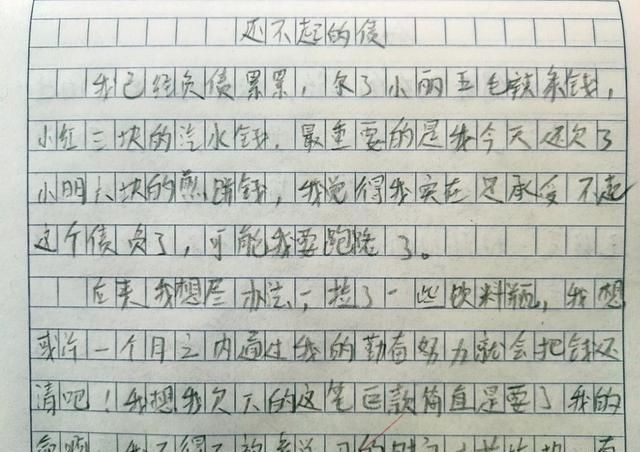 还不起的债
我已经负债累累，欠了小丽五毛辣条钱，
小红三块的汽水钱，最重要的是我今天还欠了
小明六块的煎饼钱，我觉得我实在是承受不起
这个债负了，可能我要跑路了。
后来我想尽办法，捡了一些饮料瓶，我想
或许一个月之内通过我的勤奋努力就会把钱还
清吧！我想我欠下的这笔巨款简直是要了我的